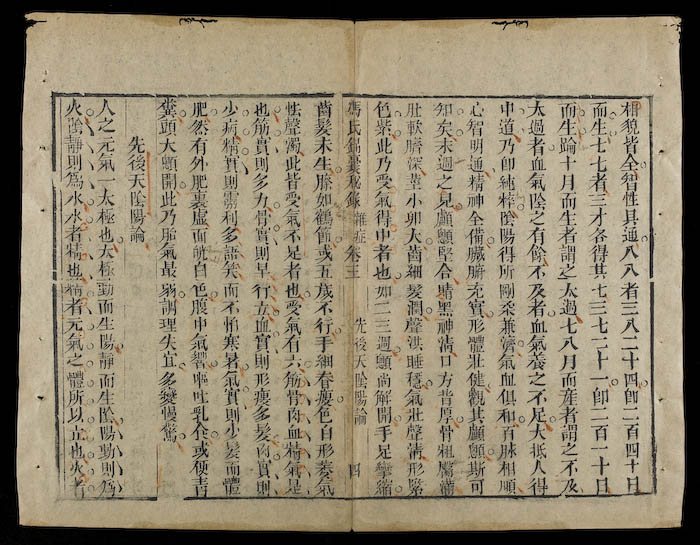 相貌皆全智性具通八八者三八二十四卽二百四十日
而生七七者三才各得其七三七二十一卽二百一十日
而生踰十月而生者謂之太過七八月而產者謂之不及
太過者血氣陰之有餘不及者血氣養之不足大抵人得
中道乃卽純粹陰陽得所剛柔兼濟氣血俱和百脉相順
心智明通精神全備臟腑充實形體壯健觀其顱顖斯可
知矣未週之兒顱顖堅合睛黑神清口方背厚骨粗臀滿
肚軟臍深莖小卵大齒細髮潤聲洪睡穩氣壯聲清形
色紫此乃受氣得中者也如二三週顖尚解開手足攣縮
馮氏錦囊秘錄 雜症 卷三 先後天陰陽論 四
齒髮未生膝如鶴節或五歲不行手細脊瘦色白形萎氣
怯聲濁此皆受氣不足者也受氣有六筋骨肉血精氣是
也筋實則多力骨實則早行血實則形瘦多髮肉實則
少病精實則靈利多語笑而不怕寒暑氣實則少髮而體
肥然有外肥裏虛面㿠白色腹中氣響嘔吐乳食或便青
糞頭大顖開此乃胎氣最弱調理失宜多變慢驚
先後天陰陽論
人之元氣一太極也太極動而生陽靜而生陰陽動則爲
火陰靜則爲水水者精也精者元氣之體所以立也火者